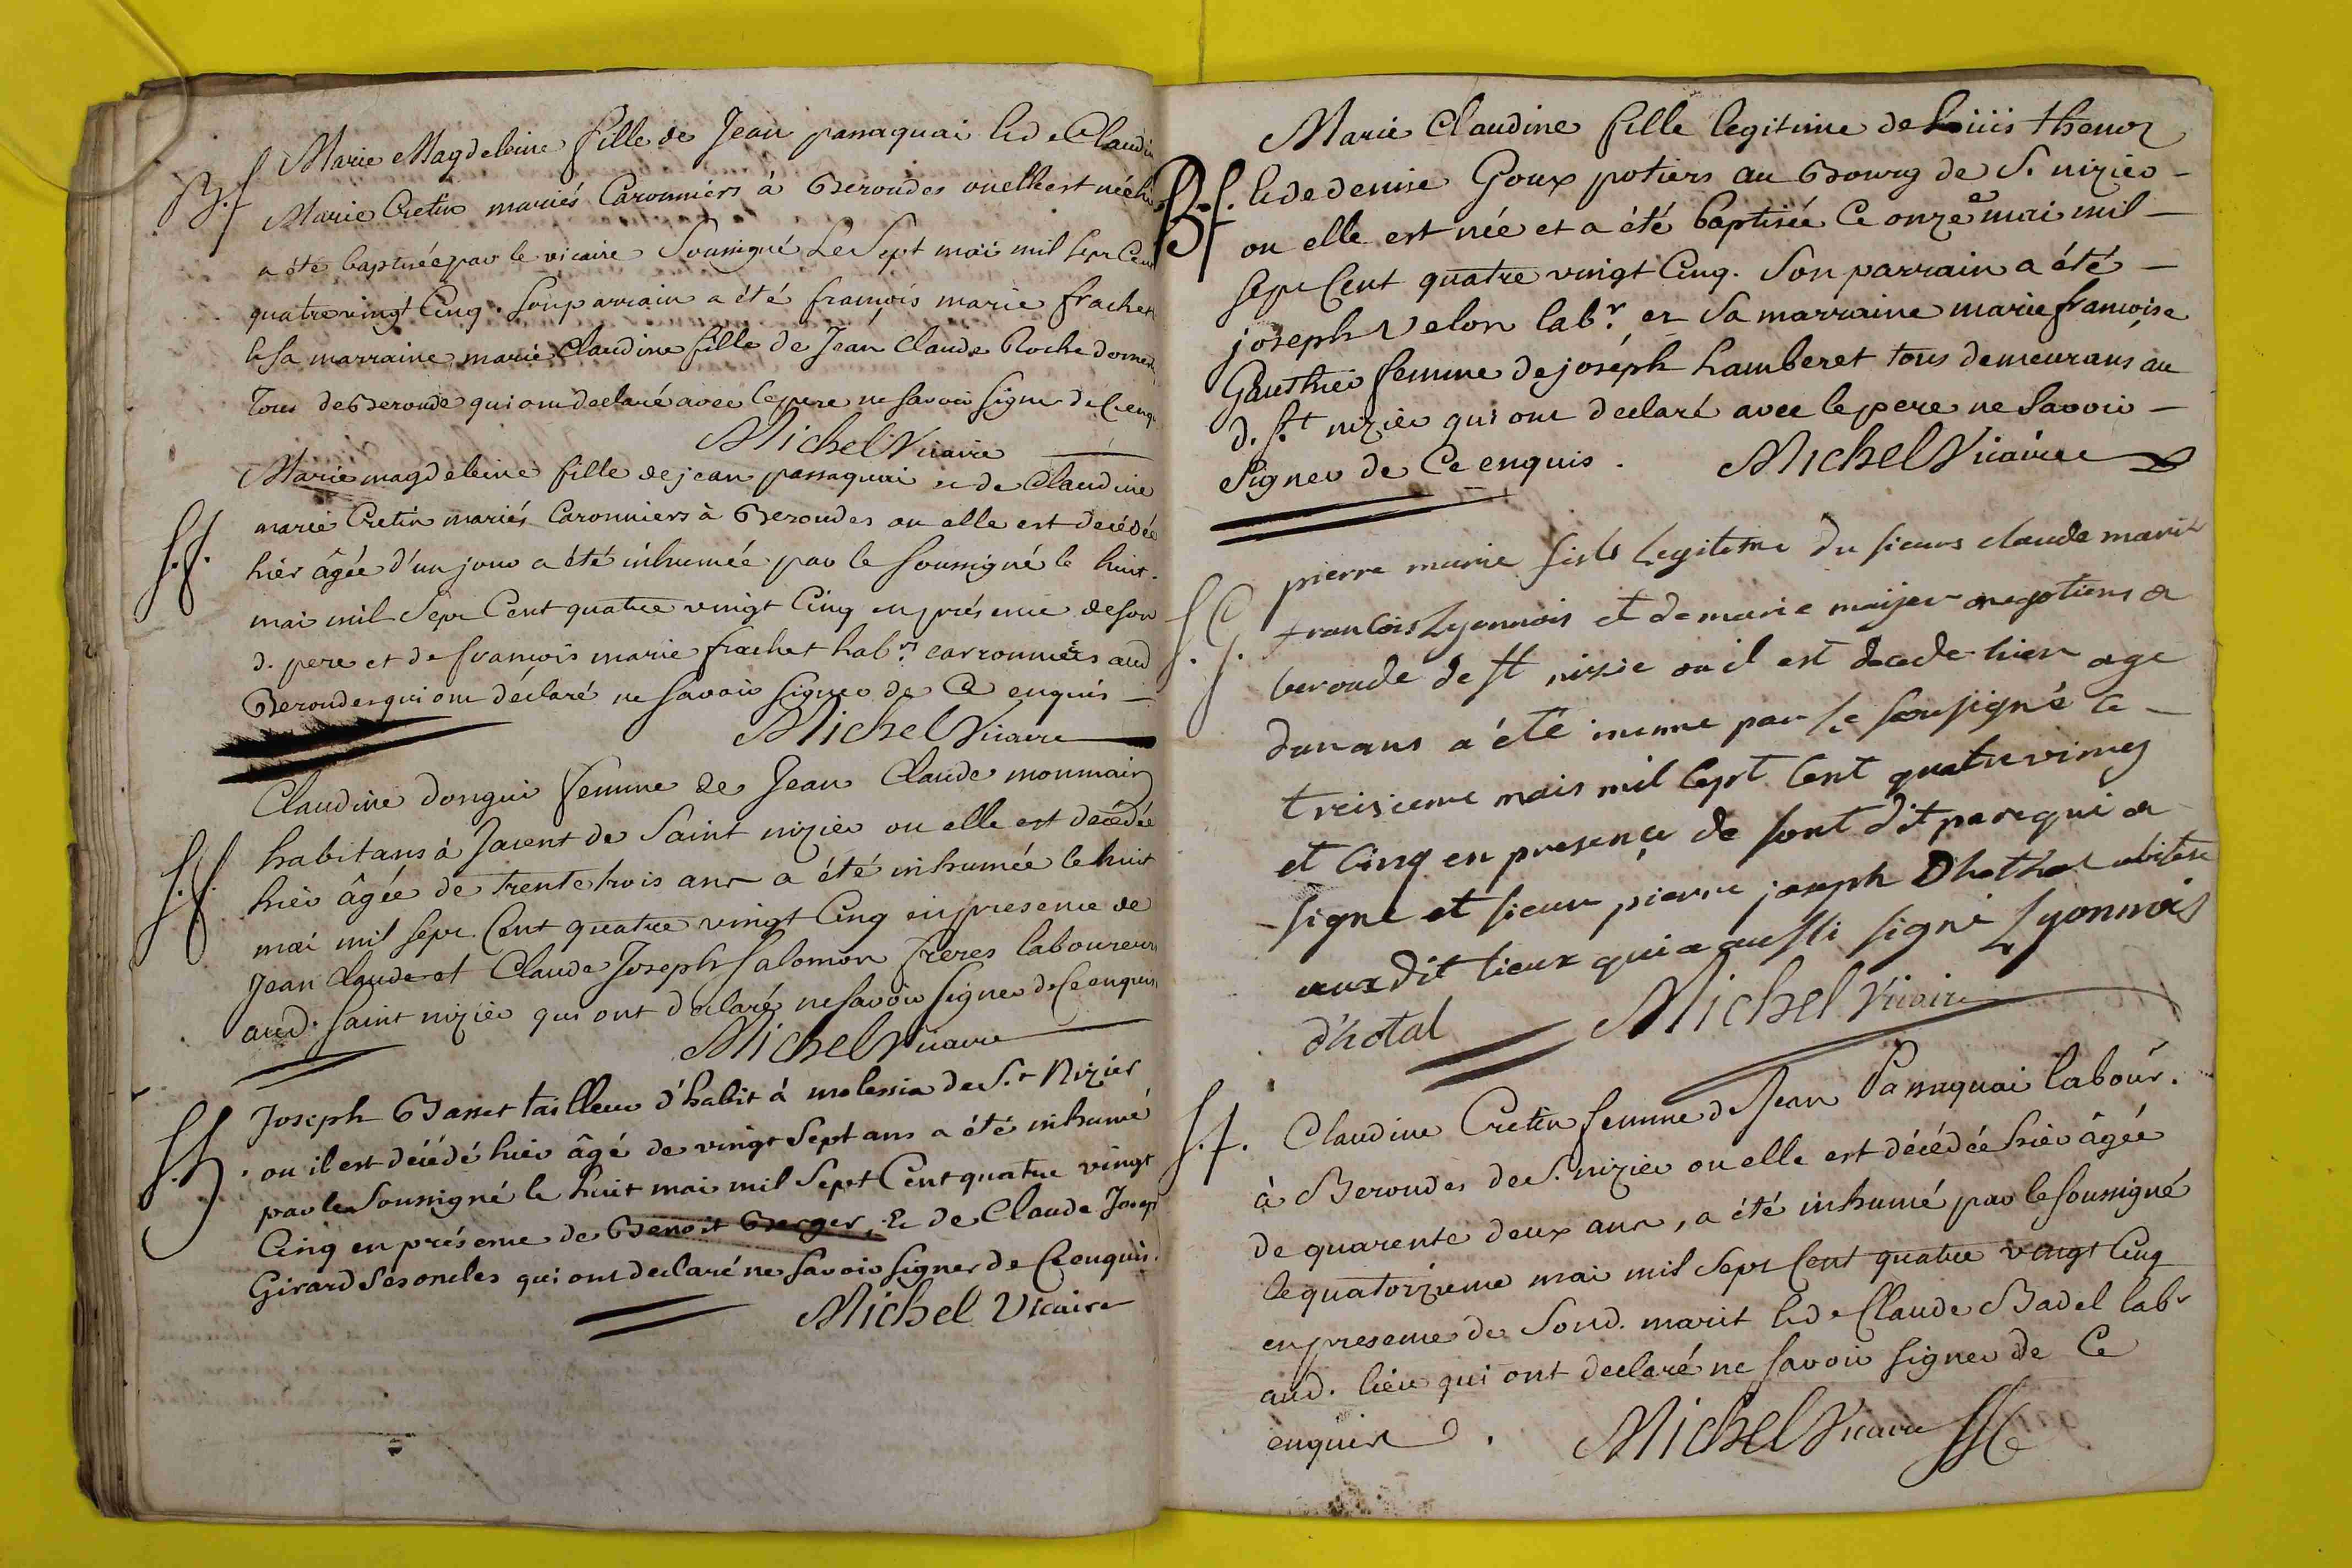 B.f
Marie Magdeleine fille de Jean passaquai & de Claudi
Marie Cretin mariés Caronniers à Beroudes ou elle est née
a été baptisée par le vicaire Soussigné Le Sept mai mil Sept Cent
quatre vingt Cinq. Son parrain a été françois marie frachet
& Sa marraine marie Claudine fille de Jean Claude Roche
Tous de Beroude qui ont declaré avec le pere ne Savoir Signer de Ce enq
Michel Vicaire
S.f.
Marie magdeleine fille de jean passaquai et de Claudine
marie Cretin mariés Caronniers à Beroudes ou elle est decédée
hier âgée d'un jour a été inhumée par le Soussigné le huit
mai mil Sept Cent quatre vingt Cinq en présence de Son
d. pere et de francois marie frachet habts. carronniers aud
Beroudes qui ont déclaré ne Savoir Signer de Ce enquis
Michel Vicaire
S.f.
Claudine donguis femme de Jean Claude monmain
habitans à Jasent de Saint nizier ou elle est decédée
hier âgée de trente trois ans a été inhumée le huit
mai mil Sept Cent quatre vingt Cinq en presence de
Jean Claude et Claude Joseph Salomon freres laboureurs
aud. Saint nizier qui ont declaré ne Savoir Signer de Ce enquis
Michel Vicaire
Joseph Basset tailleur d'habit à molessia de S.t Nizier
ou il est décédé hier âgé de vingt Sept ans a été inhumé
par le Soussigné le huit mai mil Sept Cent quatre vingt
Cinq en présence de Benoit Berger, & de Claude Josep
Girard Ses oncles qui ont declaré ne Savoir Signer de Ce enquis.
Michel Vicaire
B.f.
Marie Claudine fille legitime de Louis thenoz
& de denise Goux potiers au Bourg de S. nizier
ou elle est née et a été baptisée Ce onze mai mil
Sept Cent quatre vingt Cinq. Son parrain a été
joseph Velon labr. et Sa marraine marie francoise
Gauthier femme de joseph Lamberet tous demeurans au
d. St nizier qui ont declaré avec le pere ne Savoir
Signer de Ce enquis. Michel Vicaire
S.G.
pierre marie fils Legitime du sieur claude marie
francois Lyonnois et de marie negotiens a
beroude de St nisie ou il est decede hier age
dun ans a été inume par le sousigné le
treisieme mais mil sept cent quatre vingt
et cinq en presence de sont dit pere qui a
signe et sieur pierre joseph Dhothal abitant
audit lieux qui a aussi signé Lyonnois
d'hotal Michel Vicaire
S.f.
Claudine Cretin femme de Jean Passaquai labour.
à Beroudes de S. nizier ou elle est décédée hier âgée
de quarente deux ans, a été inhumé par le Soussigné
le quatorzieme mai mil Sept Cent quatre vingt Cinq
en presence de Sond. marit & de Claude Badel labr
aud. lieu qui ont declaré ne Savoir Signer de Ce
enquis. Michel Vicaire